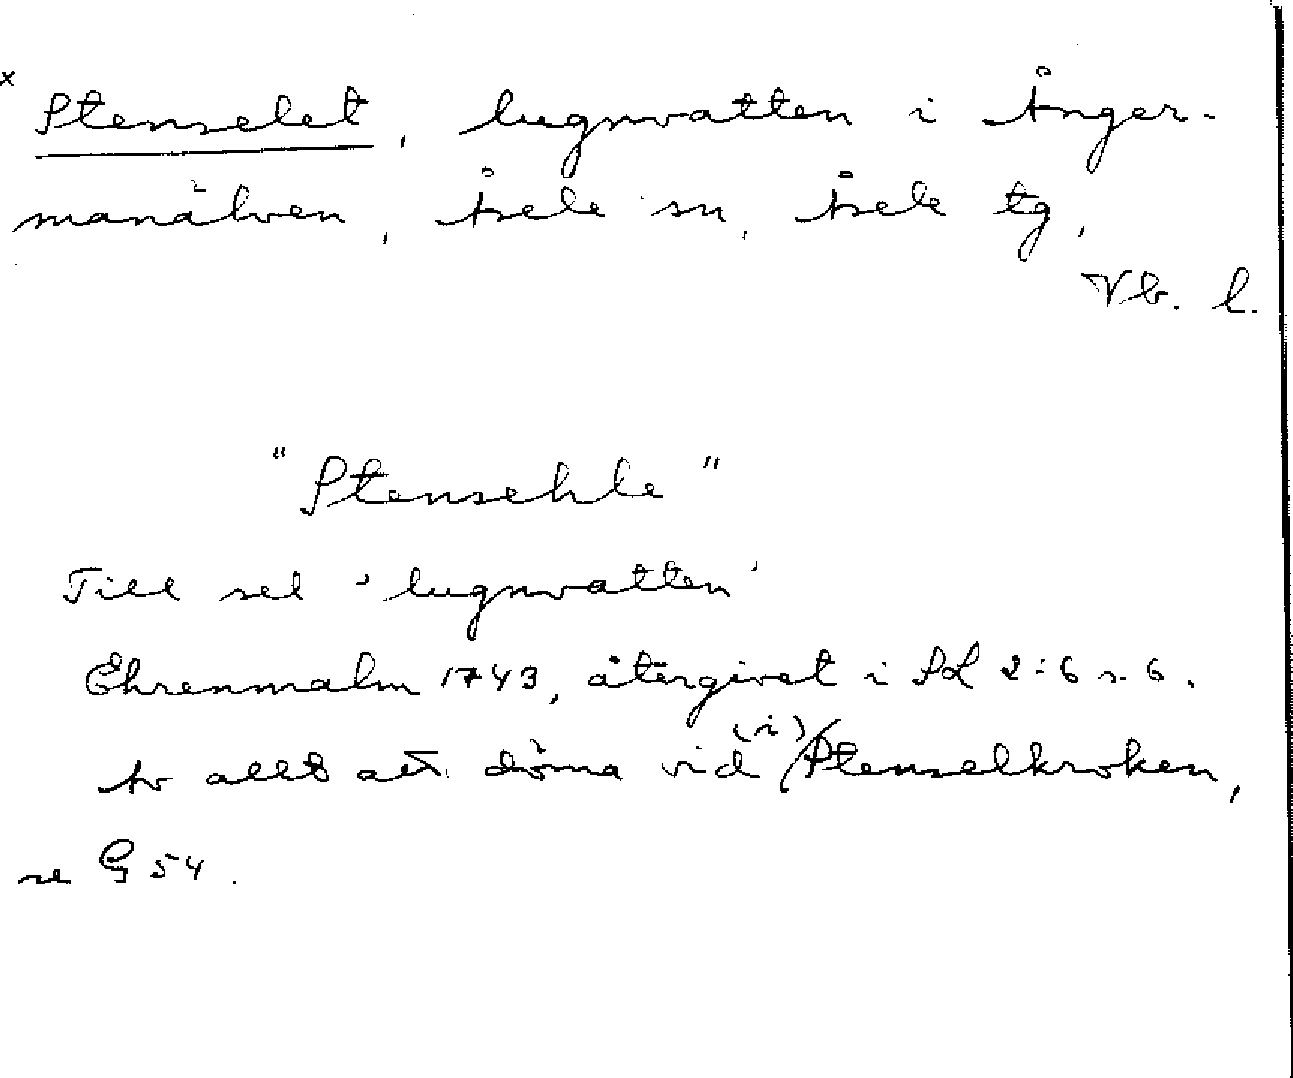 x Stenselet, lugnvatten i Ånger-
manälven, Åsele sn, Åsele tg,
Vb. l.
"Stensehle"
Till sel 'lugnvatten'
Ehrenmalm 1743, återgivet i SL 2:6 s. 6.
Av allt att döma vid (i) Stenselkroken,
se G 54.